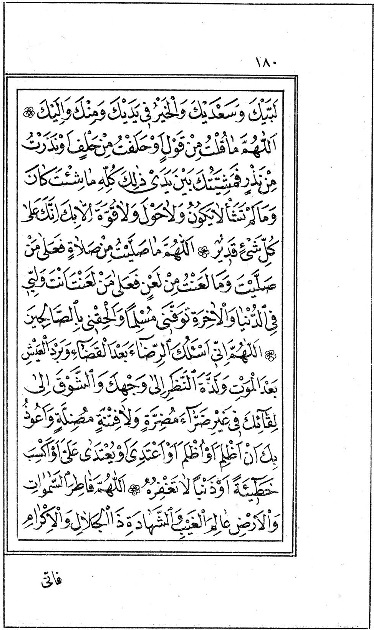 ١٨٠
لَبَّيْكَ وَسَعْدَيْكَ وَالْخَيْرُ فِي يَدَيْكَ وَمِنْكَ وَإِلَيْكَ ❁
اَللّٰهُمَّ مَا قُلْتُ مِنْ قَوْلٍ اَوْ حَلَفْتُ مِنْ حَلْفٍ اَوْ نَذَرْتُ
مِنْ نَذْرٍ فَمَشِيَّتُكَ بَيْنَ يَدَيْ ذٰلِكَ كُلِّهِ مَا شِئْتَ كَانَ
وَمَا لَمْ تَشَأْ لَا يَكُونُ وَلَا حَوْلَ وَلَا قُوَّةَ اِلَّا بِكَ اِنَّكَ عَلٰى
كُلِّ شَيْءٍ قَدِيرٌ ❁ اَللّٰهُمَّ مَا صَلَّيْتُ مِنْ صَلَاةٍ فَعَلٰى مَنْ
صَلَّيْتَ وَمَا لَعَنْتُ مِنْ لَعْنٍ فَعَلٰى مَنْ لَعَنْتَ اَنْتَ وَلِيِّي
فِي الدُّنْيَا وَالْاٰخِرَةِ تَوَفَّنِي مُسْلِمًا وَاَلْحِقْنِي بِالصَّالِحِينَ
❁ اَللّٰهُمَّ اِنِّي اَسْئَلُكَ الرِّضَاءَ بَعْدَ الْقَضَاءِ وَبَرْدَ الْعَيْشِ
بَعْدَ الْمَوْتِ وَلَذَّةَ النَّظَرِ اِلٰى وَجْهِكَ وَالشَّوْقَ اِلٰى
لِقَائِكَ فِي غَيْرِ ضَرَّاءَ مُضِرَّةٍ وَلَا فِتْنَةٍ مُضِلَّةٍ وَاَعُوذُ
بِكَ اَنْ اَظْلِمَ اَوْ اُظْلَمَ اَوْ اَعْتَدِيَ اَوْ يُعْتَدٰى عَلَيَّ اَوْ اَكْسِبَ
خَطِيئَةً اَوْ ذَنْبًا لَا تَغْفِرُهُ ❁ اَللّٰهُمَّ فَاطِرَ السَّمٰوَاتِ
وَالْاَرْضِ عَالِمَ الْغَيْبِ وَالشَّهَادَةِ ذَا الْجَلَالِ وَالْاِكْرَامِ
فَاِنِّي